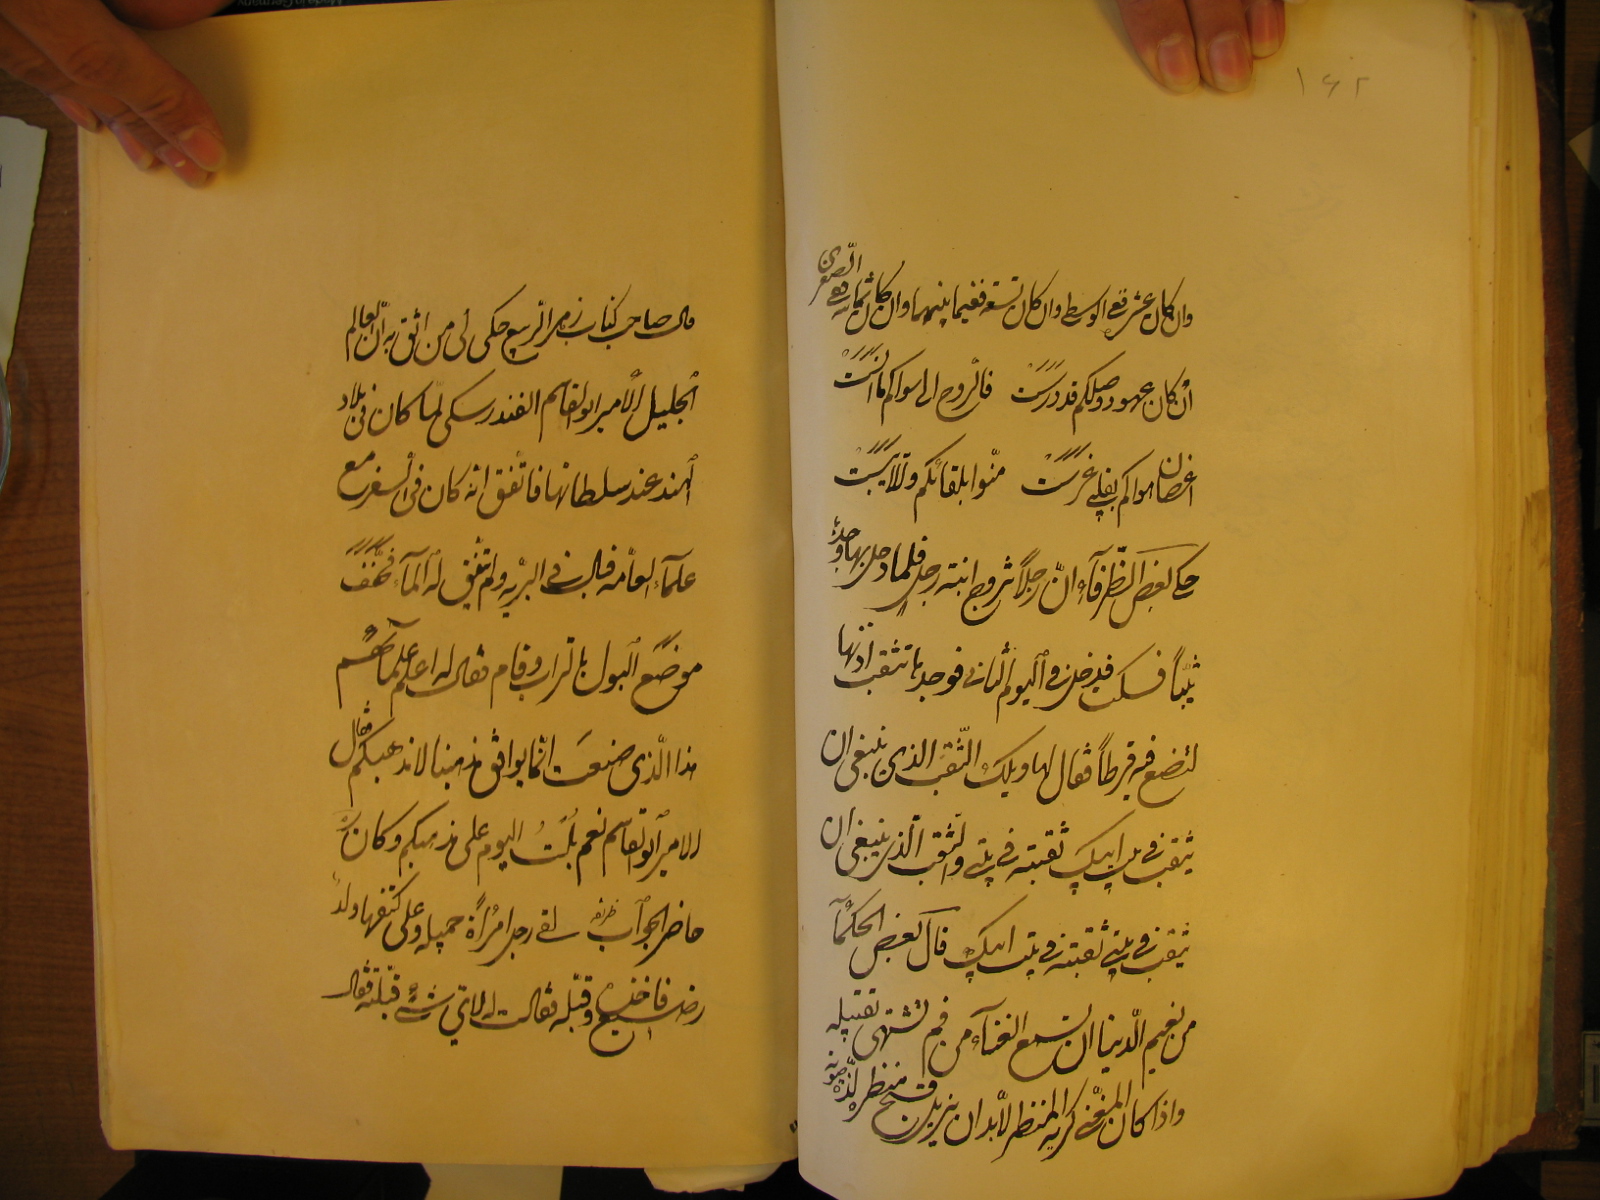 ١٤٢
وان كان عشر فهى الوسطى وان كان تسعة ففيما بينهما وان كان ثمانية فهى الصغرى
ان كان عهود وصلكم قد درست فالروح الى سواكم ما انست
اغصان هواكم بقلبى غرست منوا بلقائكم والا يبست
حكى بعض الظرفآء ان رجلاً زوج ابنته رجل فلما دخل بها وجدها
ثيباً فسكت فدخل فى اليوم الثانى فوجدها تثقب اذنها
لتضع فيه قرطاً فقال لها ويلك الثقب الذى ينبغى ان
يثقب فى بيت ابيك ثقبته فى بيتى والثقب الذى ينبغى ان
يثقب فى بيتى ثقبته فى بيت ابيك قال بعض الحكمآء
من نعيم الدنيا ان تسمع الغنآء من فم تشتهى تقبيله
واذا كان المغنى كريه المنظر لابد ان يزيد قبح منظره لذة صوته
قال صاحب كتاب زهر الربيع حكى لى من اثق به ان العالم
الجليل الامير ابو القاسم الفندرسكى لما كان فى بلاد
الهند عند سلطانها فاتفق انه كان فى السفر مع
علمآء العامه فبال فى البريه ولم يتفق له المآء فجفف
موضع البول بالتراب وقام فقال له اعلم علمآئهم
هذا الذى صنعت انما يوافق مذهبنا لا مذهبكم فقال
الامير ابو القاسم نعم بلت اليوم على مذهبكم وكان
حاضر الجواب ظريفه لقى رجل امرأة جميله وعلى كتفها ولد
رضيع فاخذه وقبله فقالت له لاى شئ قبلته فقال